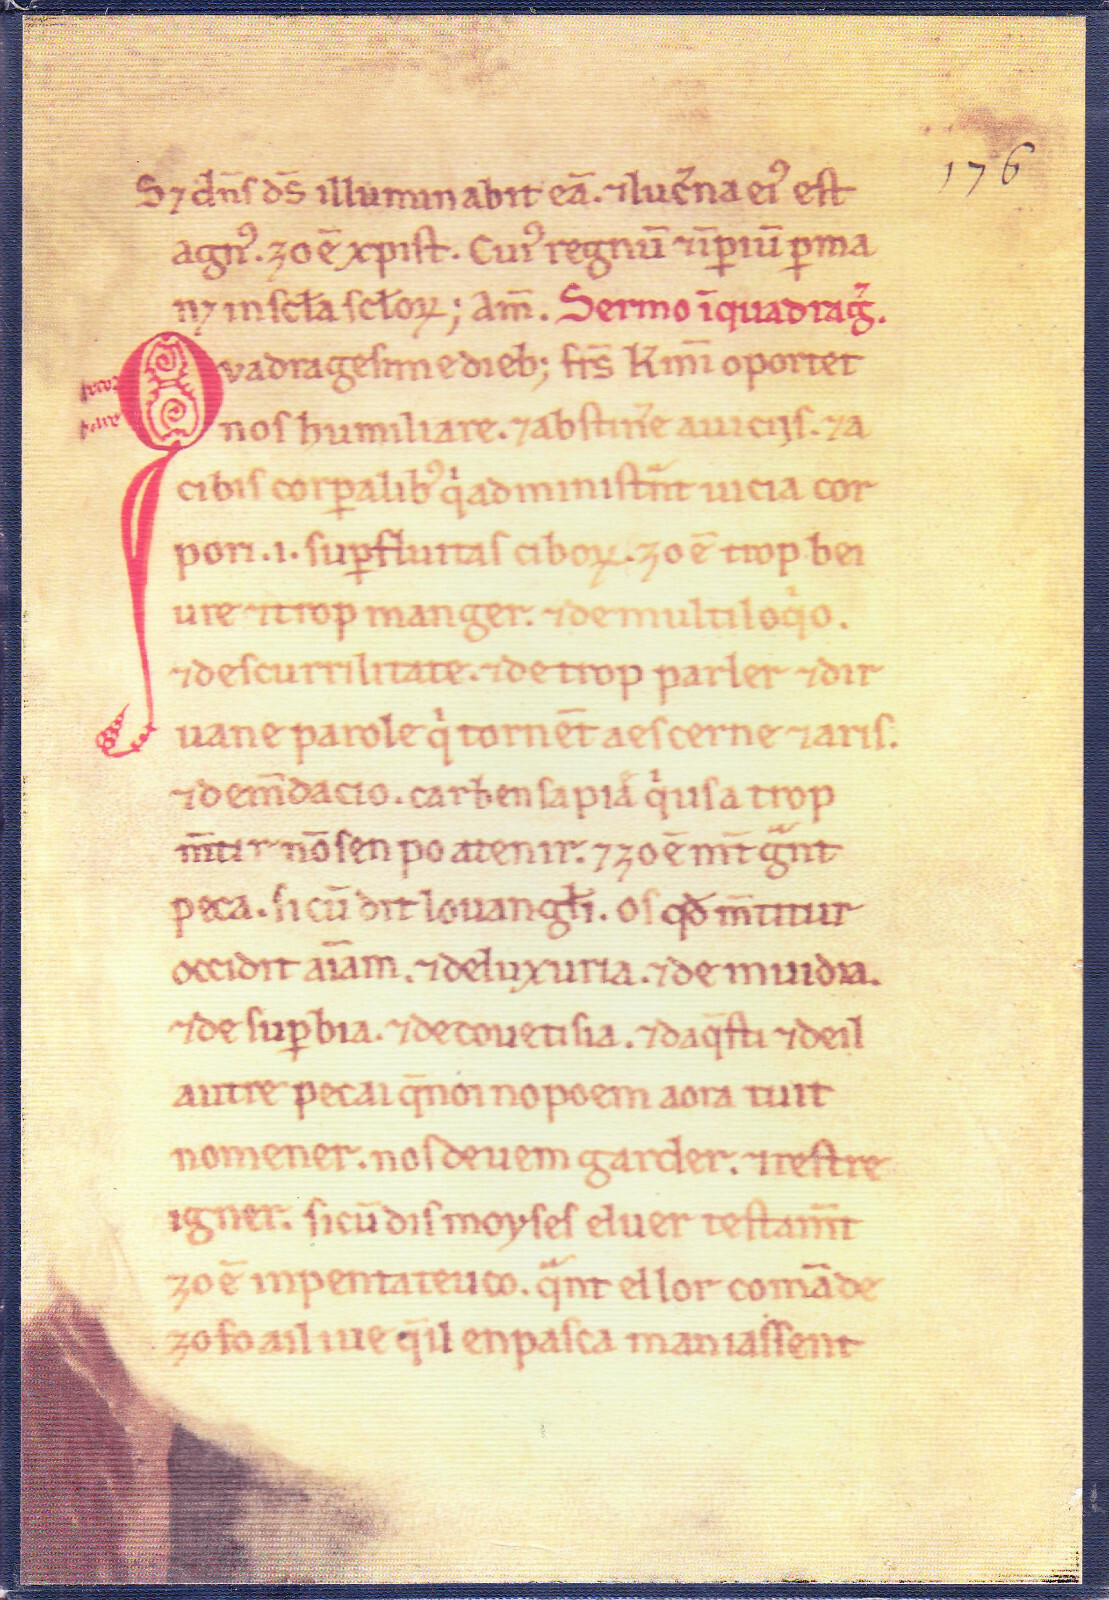 176
S⁊ dn̄s ds̄ illuminabit eā. ⁊lucn̄a eiꝰ est
agnꝰ. zo ē xpist. Cuiꝰ regnū ⁊īpiū ꝑma
n⁊ in scl̄a scl̄oꝝ; Am̄. Sermo ī quadrag̃.
Quadragesime dieb; frs̄ kmī oportet
nos humiliare. ⁊ abstin̄e a uicijs. ⁊ a
cibis corꝑalibꝰ q̍ administn̄t uicia cor
pori .i. suꝑfluitas ciboꝝ. zo ē trop bei
ure ⁊ trop manger. ⁊ de multiloq̍o.
⁊ de scurrilitate. ⁊ de trop parler ⁊ dir
uane parole q̍ tornēt a escerne ⁊ a ris.
⁊ de m̄dacio. car ben sapiá q̍ usa trop
m̄tir nō sen po atenir. ⁊ zo ē mt̄ gnt
peca. sicū dit louangl̄i. Os qđ m̄titur
occidit aīam. ⁊ de luxuria. ⁊ de inuidia.
⁊ de suꝑbia. ⁊ de couetisia. ⁊ daq̄sti ⁊ deil
autre pecai q̄ noi no poem aora tuit
nomener. nos deuem garder. ⁊ restre
igner. sicū dis moyses el uer testam̄t
zo ē in pentateuco. qnt el lor comāde
zo fo a il iue q̄ il en pasca maniassent